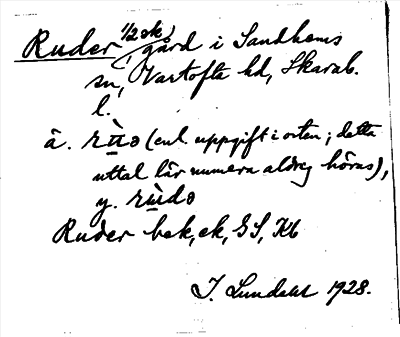 Ruder 1/2 mk, gård i Sandhems
sn, Vartofta hd, Skarab.
l.
ä. rùə (enl. uppgift i orten; detta
uttal lär numera aldrig höras),
y. rùdə
Ruder bek, ek, GS, Kb
J. Lundahl 1928.